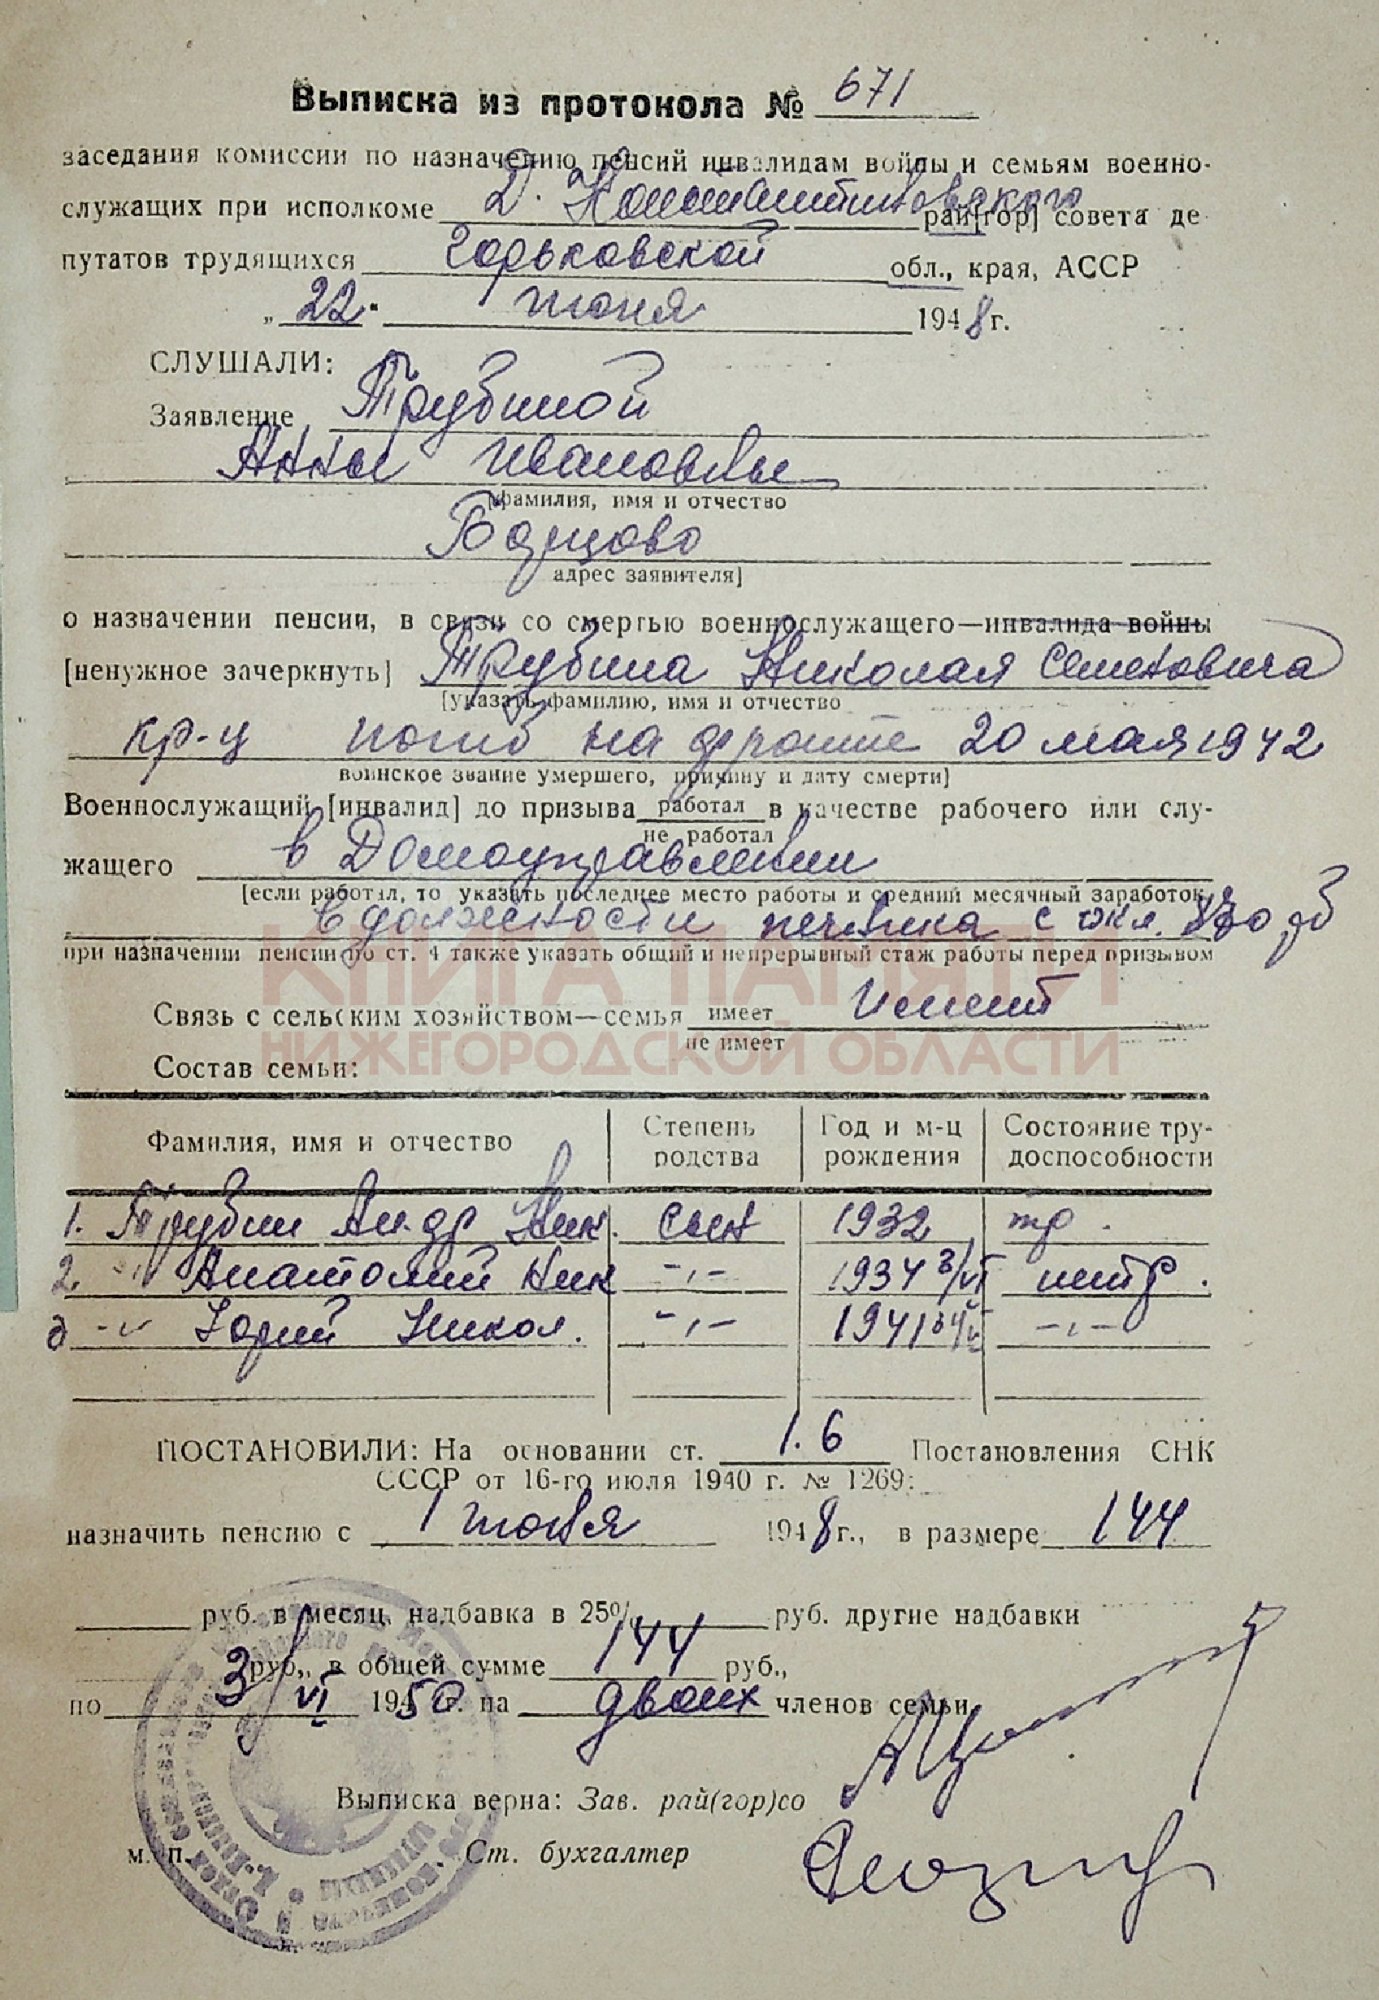 Выписка из протокола № 671
заседания комиссии по назначению пенсий инвалидам войны и семьям военно-
служащих при исполкоме Д. Константиновского рай[гор] совета де
путатов трудящихся Горьковской обл., края, АССР
„ 22 " июня 1948 г.
СЛУШАЛИ:
Заявление Трубиной
Анны Ивановны
[фамилия, имя и отчество
адрес заявителя]
о назначении пенсии, в связи со смертью военнослужащего—инвалида войны
[ненужное зачеркнуть] Трубина Николая Семеновича
[указать фамилию, имя и отчество
кр-ц погиб на фронте 20 мая 1942
воинское звание умершего, причину и дату смерти]
Военнослужащий [инвалид] до призыва работал в качестве рабочего или слу-
не работал
жащего в Домоуправлении
[если работал, то указать последнее место работы и средний месячный заработок,
в должности печника с окл.
при назначении пенсии по ст. 4 также указать общий и непрерывный стаж работы перед призывом
КНИГА ПАМЯТИ
Связь с сельским хозяйством—семья имеет Имеет
не имеет
НИЖЕГОРОДСКОЙ ОБЛАСТИ
Состав семьи:
Фамилия, имя и отчество Степень родства Год и м-ц рождения Состояние тру-доспособности
1. Трубин Андр Ник. сын 1932 тр.
2. -"- Анатолий Ник -"- 1934 3/VI нетр.
3 -"- Юрий Никол. -"- 1941 -"-
ПОСТАНОВИЛИ: На основании ст. 1.6 Постановления СНК
СССР от 16-го июля 1940 г. № 1269:
назначить пенсию с 1 июня 1948 г., в размере 144
руб. в месяц, надбавка в 25% руб. другие надбавки
руб., в общей сумме 144 руб.,
по 3/VI 1950 г. на двоих членов семьи
Выписка верна: Зав. рай(гор)со
м. п. Ст. бухгалтер